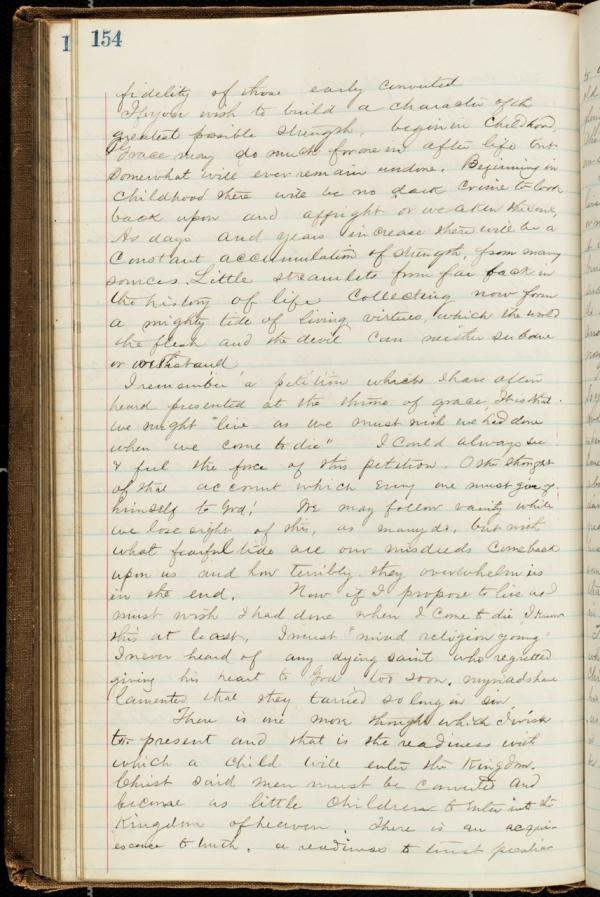 154
fidelity of those early converted
If you wish to build a character of the
greatest possible strength, begin in childhood,
Grace may do much for one in after life but
somewhat will ever remain undone. Beginning in
childhood there will be no dark crime to look
back upon and affright or weaken the soul,
As days and years increase there will be a
constant accumulation of strength, from many
sources. Little streamlets from far back in
the history of life collecting now form
a mighty tide of living virtues, which the world
the flesh and the devil can neither subdue
or withstand
I remember a petition which I have often
heard presented at the throne of grace, It is that
we might "live as we must wish we had done
when we come to die" I could always see
& feel the force of this petition. O the thought
of that account which every one must give of
himself to God! We may follow vanity while
we lose sight of this, as many do, but with
what fearful tide are our misdeeds come back
upon us and how terribly they overwhelm us
in the end. Now if I propose to live as I
must wish I had done when I come to die, I know
this at least, I must "mind religion young"
I never heard of any dying saint who regretted
giving his heart to God too soon. myriads have
lamented that they tarried so long in sin,
There is one more thought which I wish
to present and that is the readiness with
which a child will enter the Kingdom.
Christ said men must be converted and
become as little children to enter into the
Kingdom of heaven. There is an acqui-
escence to truth, a readiness to trust peculiar